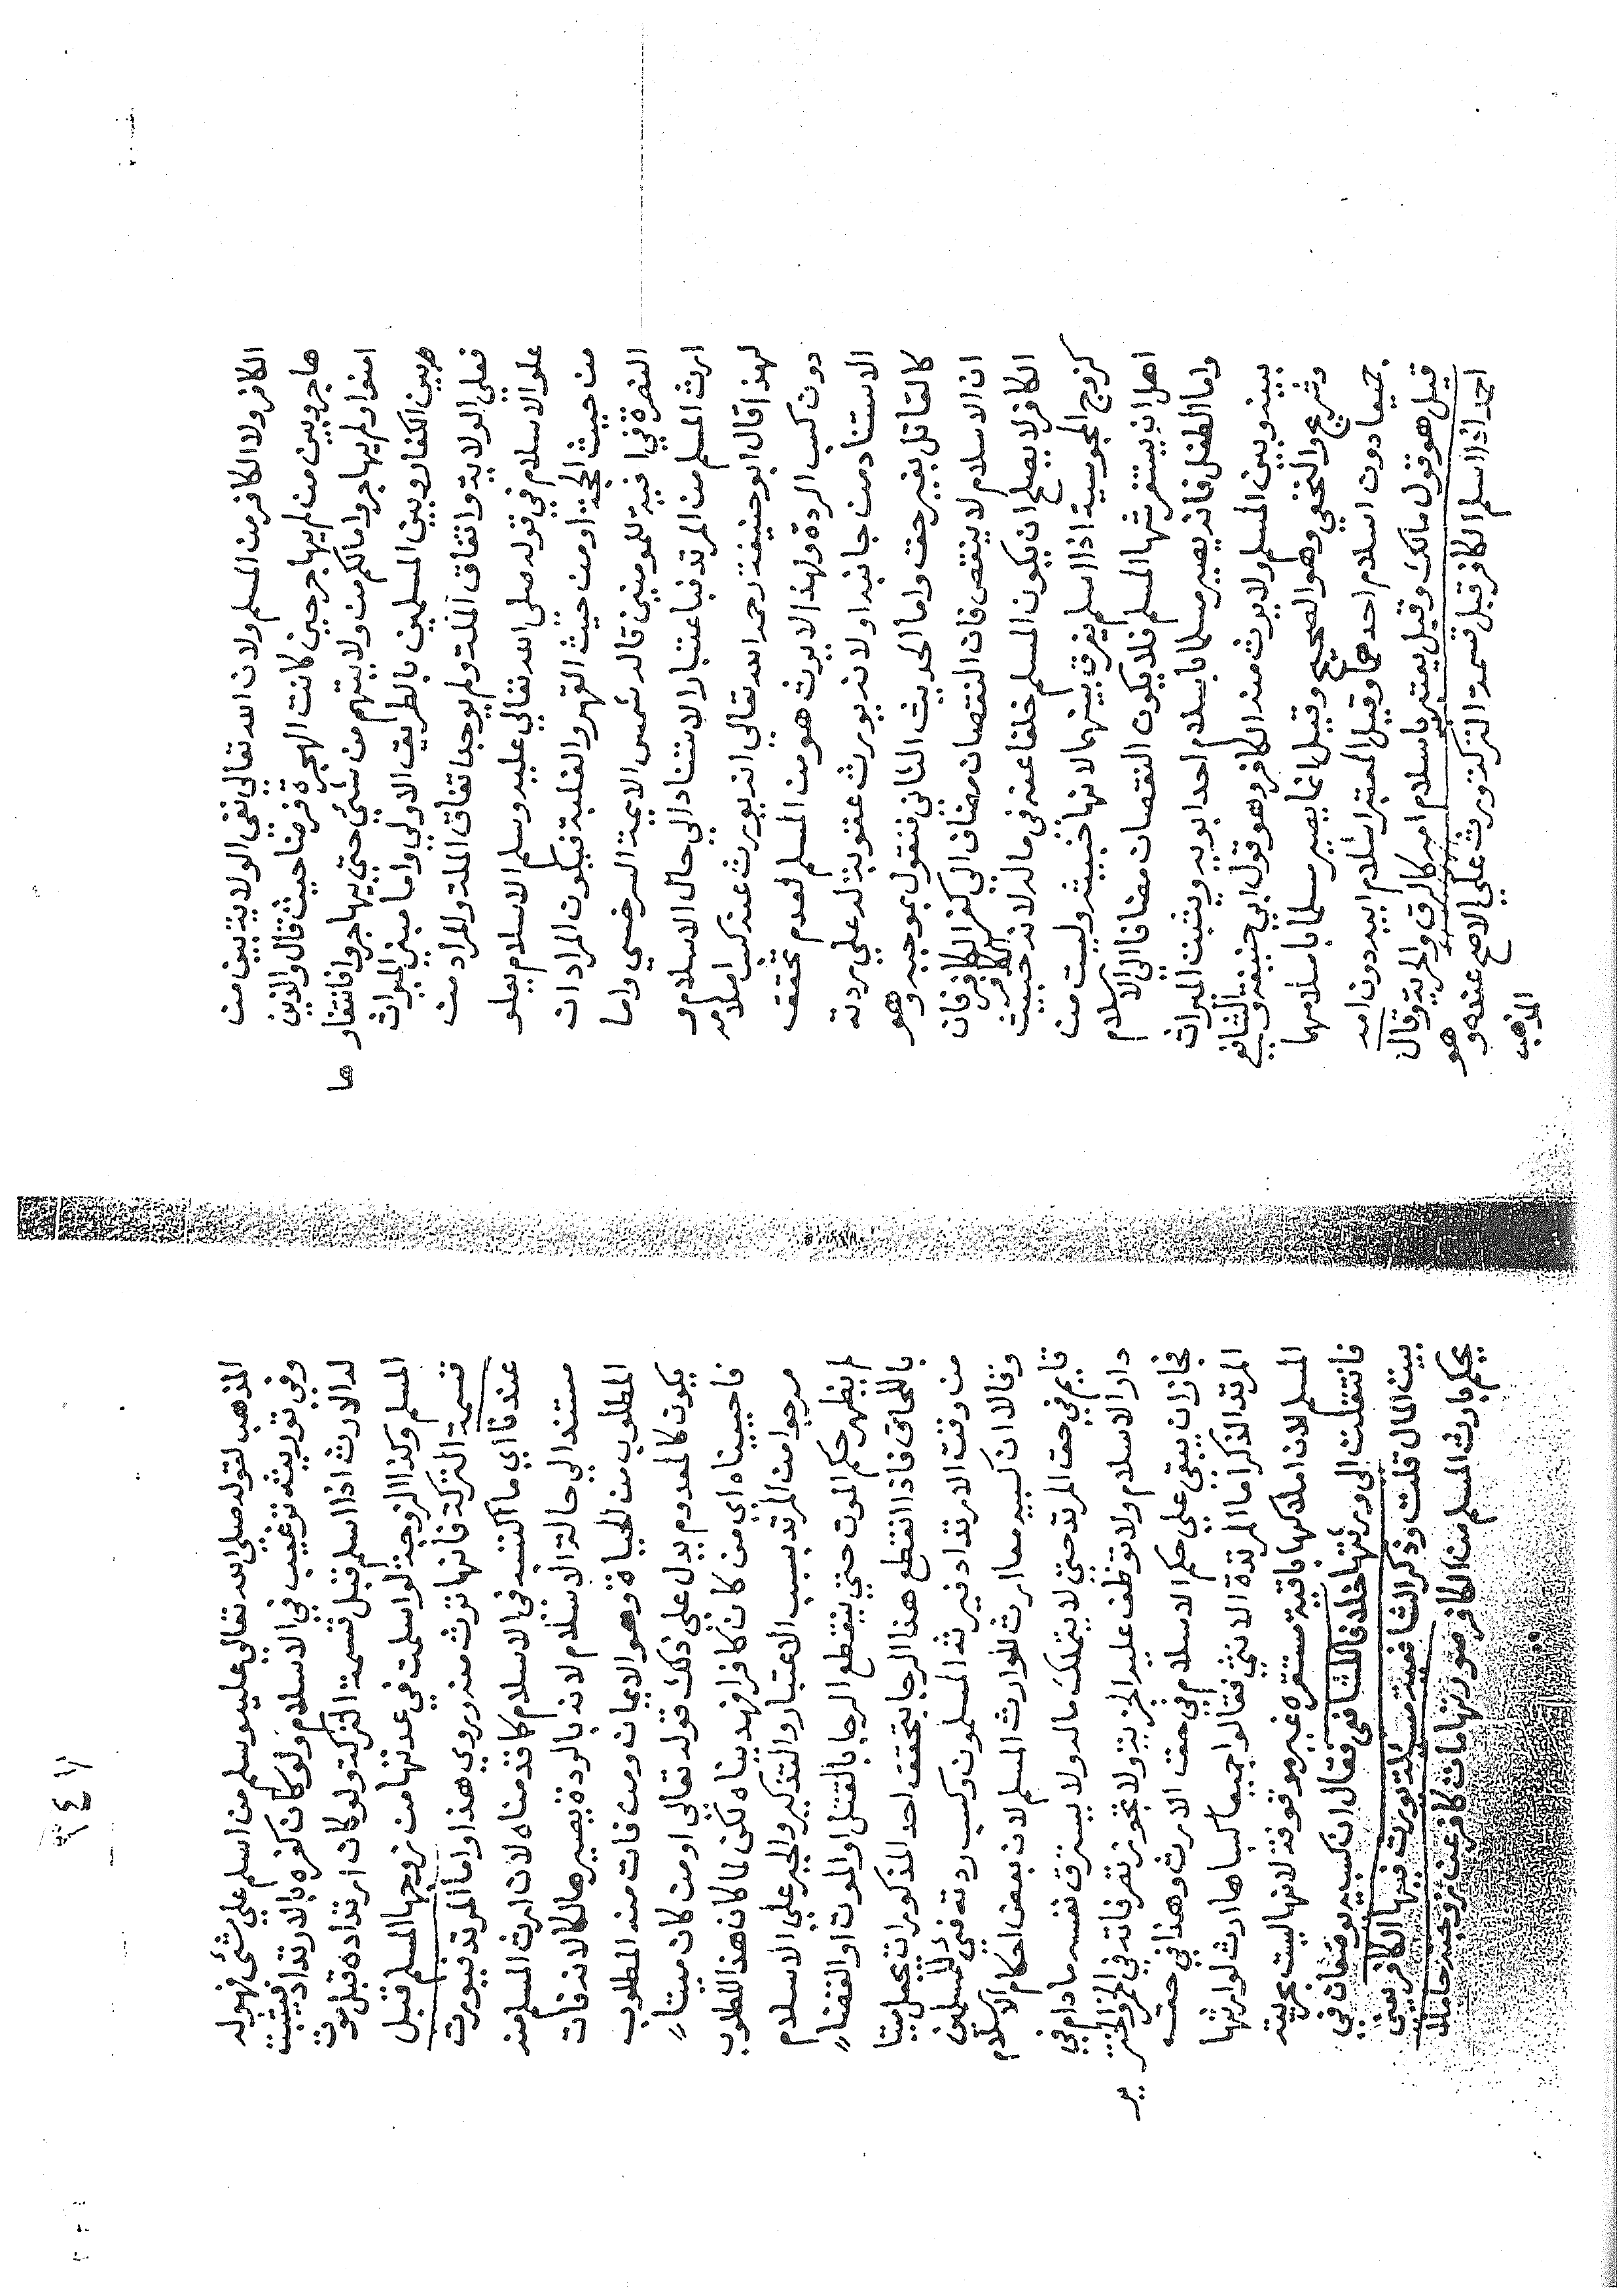 الكافر ولا الكافر من المسلم ولان الله تعالي نفى الولاية بين من
هاجر وبين من لم يهاجر حين كانت الهجرة فرضا حيث قال والذين
امنوا ولم يهاجروا ما لكم من ولايتهم من شيء حتى يهاجروا فانتفاوها
بين الكفار وبين المسلمين بالطريق الاولي واما مبني الميراث
فعلى الولاية واتفاق الملة ولم يوجد اتفاق الملة والمراد من
علو الاسلام في قوله صلى الله تعالي عليه وسلم الاسلام يعلو
من حيث الحجة او من حيث القهر والغلبة فيكون المراد ان
النصرة في العاقبة للمومنين قاله شمس الايمة السرخسي واما
ارث المسلم من المرتد فباعتبار الاستناد الي حال الاسلام و
لهذا قال ابو حنيفة رحمه الله تعالي انه يورث عنه كسب اسلامه
دون كسب الردة ولهذا لا يرث هو من المسلم لعدم تحقق
الاستناد من جانبه او لانه يورث عقوبة له علي ردته
كالقاتل بغير حق واما الحديث الثاني فنقول بموجبه وهو
ان الاسلام لا ينقص فان النقصان مضاف الي كفر الكافر فان
الكافر لا يصلح ان يكون المسلم خلفا عنه في ماله لانه خبيث
كزوج المجوسية اذا اسلم يفرق بينهما لانها خبيثة وليست من
اهل ان يستفرشها المسلم فلا يكون النقصان مضافا الى الاسلام
واما الطفل فانه يصير مسلما باسلام احد ابويه ويثبت الميراث
بينه وبين المسلم ولا يرث منه الكافر وهو قول ابي حنيفة والشافعي
وشريح والنخعي وهو الصحيح وقيل انما يصير مسلما باسلامهما
جميعا دون اسلام احدهما وقيل المعتبر اسلام ابيه دون امه
قيل هو قول مالك وقيل يعتبر باسلام امه كالرق والحرية وقال
احمد اذا اسلم الكافر قبل قسمة التركة ورث علي الاصح عنده وهو
المذهب
المذهب لقوله صلى الله تعالي عليه وسلم من اسلم علي شيء فهو له
وفي توريثه ترغيب في الاسلام ولو كان كفره بالارتداد فيثبت
له الارث اذا اسلم قبل قسمة التركة ولو كان ارتداده قبل موت
المسلم وكذا الزوجة لو اسلمت في عدتها من زوجها المسلم قبل
قسمة التركة فانها ترث منه وروي هذا واما المرتد فيورث
عندنا اي ما اكتسبه في الاسلام كما قدمناه لان ارث المسلم منه
مستند الي حالة الاسلام لانه بالردة يصير هالكا لانه فات
المطلوب من الحياة وهو الايمان ومن فات منه المطلوب
يكون كالمعدوم يدل على ذلك قوله تعالي او من كان ميتا
فاحييناه اي من كان كافرا فهديناه لكن لما كان هذا المطلوب
مرجوا من المرتد بسبب الاعتبار والتذكير والجبر علي الاسلام
لم يظهر حكم الموت حتى ينقطع الرجا بالقتل او الموت او القضاء
باللحاق فاذا انقطع هذا الرجا بتحقق احد المذكورات يجعل ميتا
من وقت الارتداد فيرثه المسلمون وكسب ردته فيء للمسلمين
وقالا ان كسبيه معا ارث للوارث المسلم لان بعض احكام الاسلام
قايم في حق المرتد حتى لا يتملك ماله ولا يسترق نفسه ما دام في
دار الاسلام ولا توظف عليه الجزية ولا تجوز تصرفاته في الخمر والخنزير
فجاز ان يبقى علي حكم الاسلام في حق الارث وهذا في حق
المرتد الذكر اما المرتدة الانثي فقالوا جميعا كسباها ارث لوارثها
المسلم لان املاكها باقية مستقره غير موقوفة لانها ليست بحربية
فانتقلت الى ورثتها خلافا للشافعي فقال ان كسبيه يوضعان في
بيت المال قلت وذكر الشافعية مسيلة تورث فيها الكافر يعني
يحكم بارث المسلم من الكافر صورتها مات كافر عن زوجة حاملا